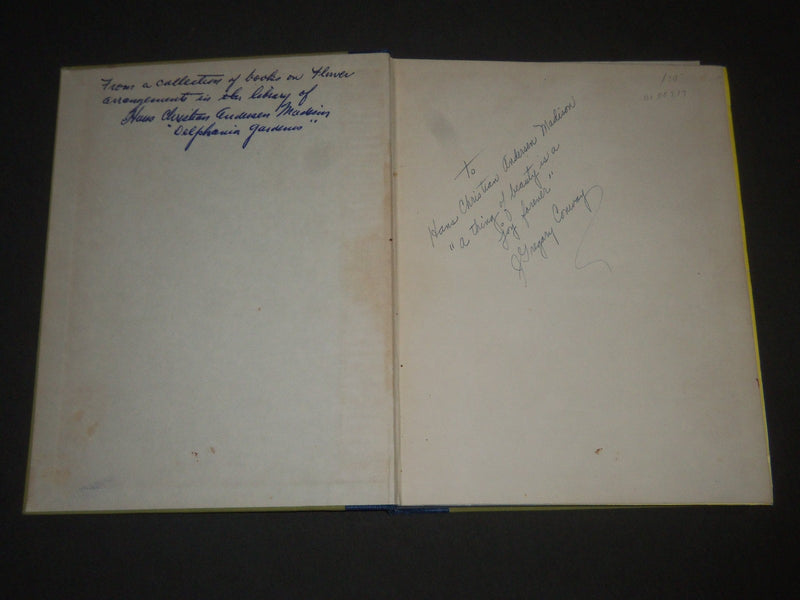 From a collection of books on Flower
arrangements in the library of
Hans Christian Andersen Madison
"Delphania Gardens"
To
Hans Christian Andersen Madison
"a thing of beauty is a
joy forever"
J Gregory Conway